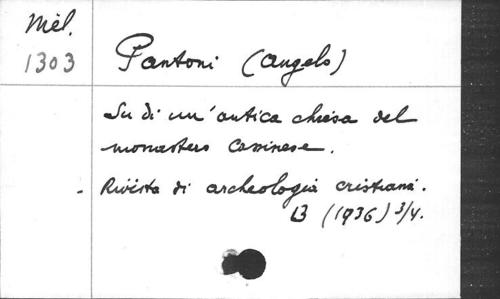 Mél.
1303
Pantoni (Angelo)
Su di un'antica chiesa del
monastero Cassinese.
Rivista di archeologia cristiana.
13 (1936) 3/4.